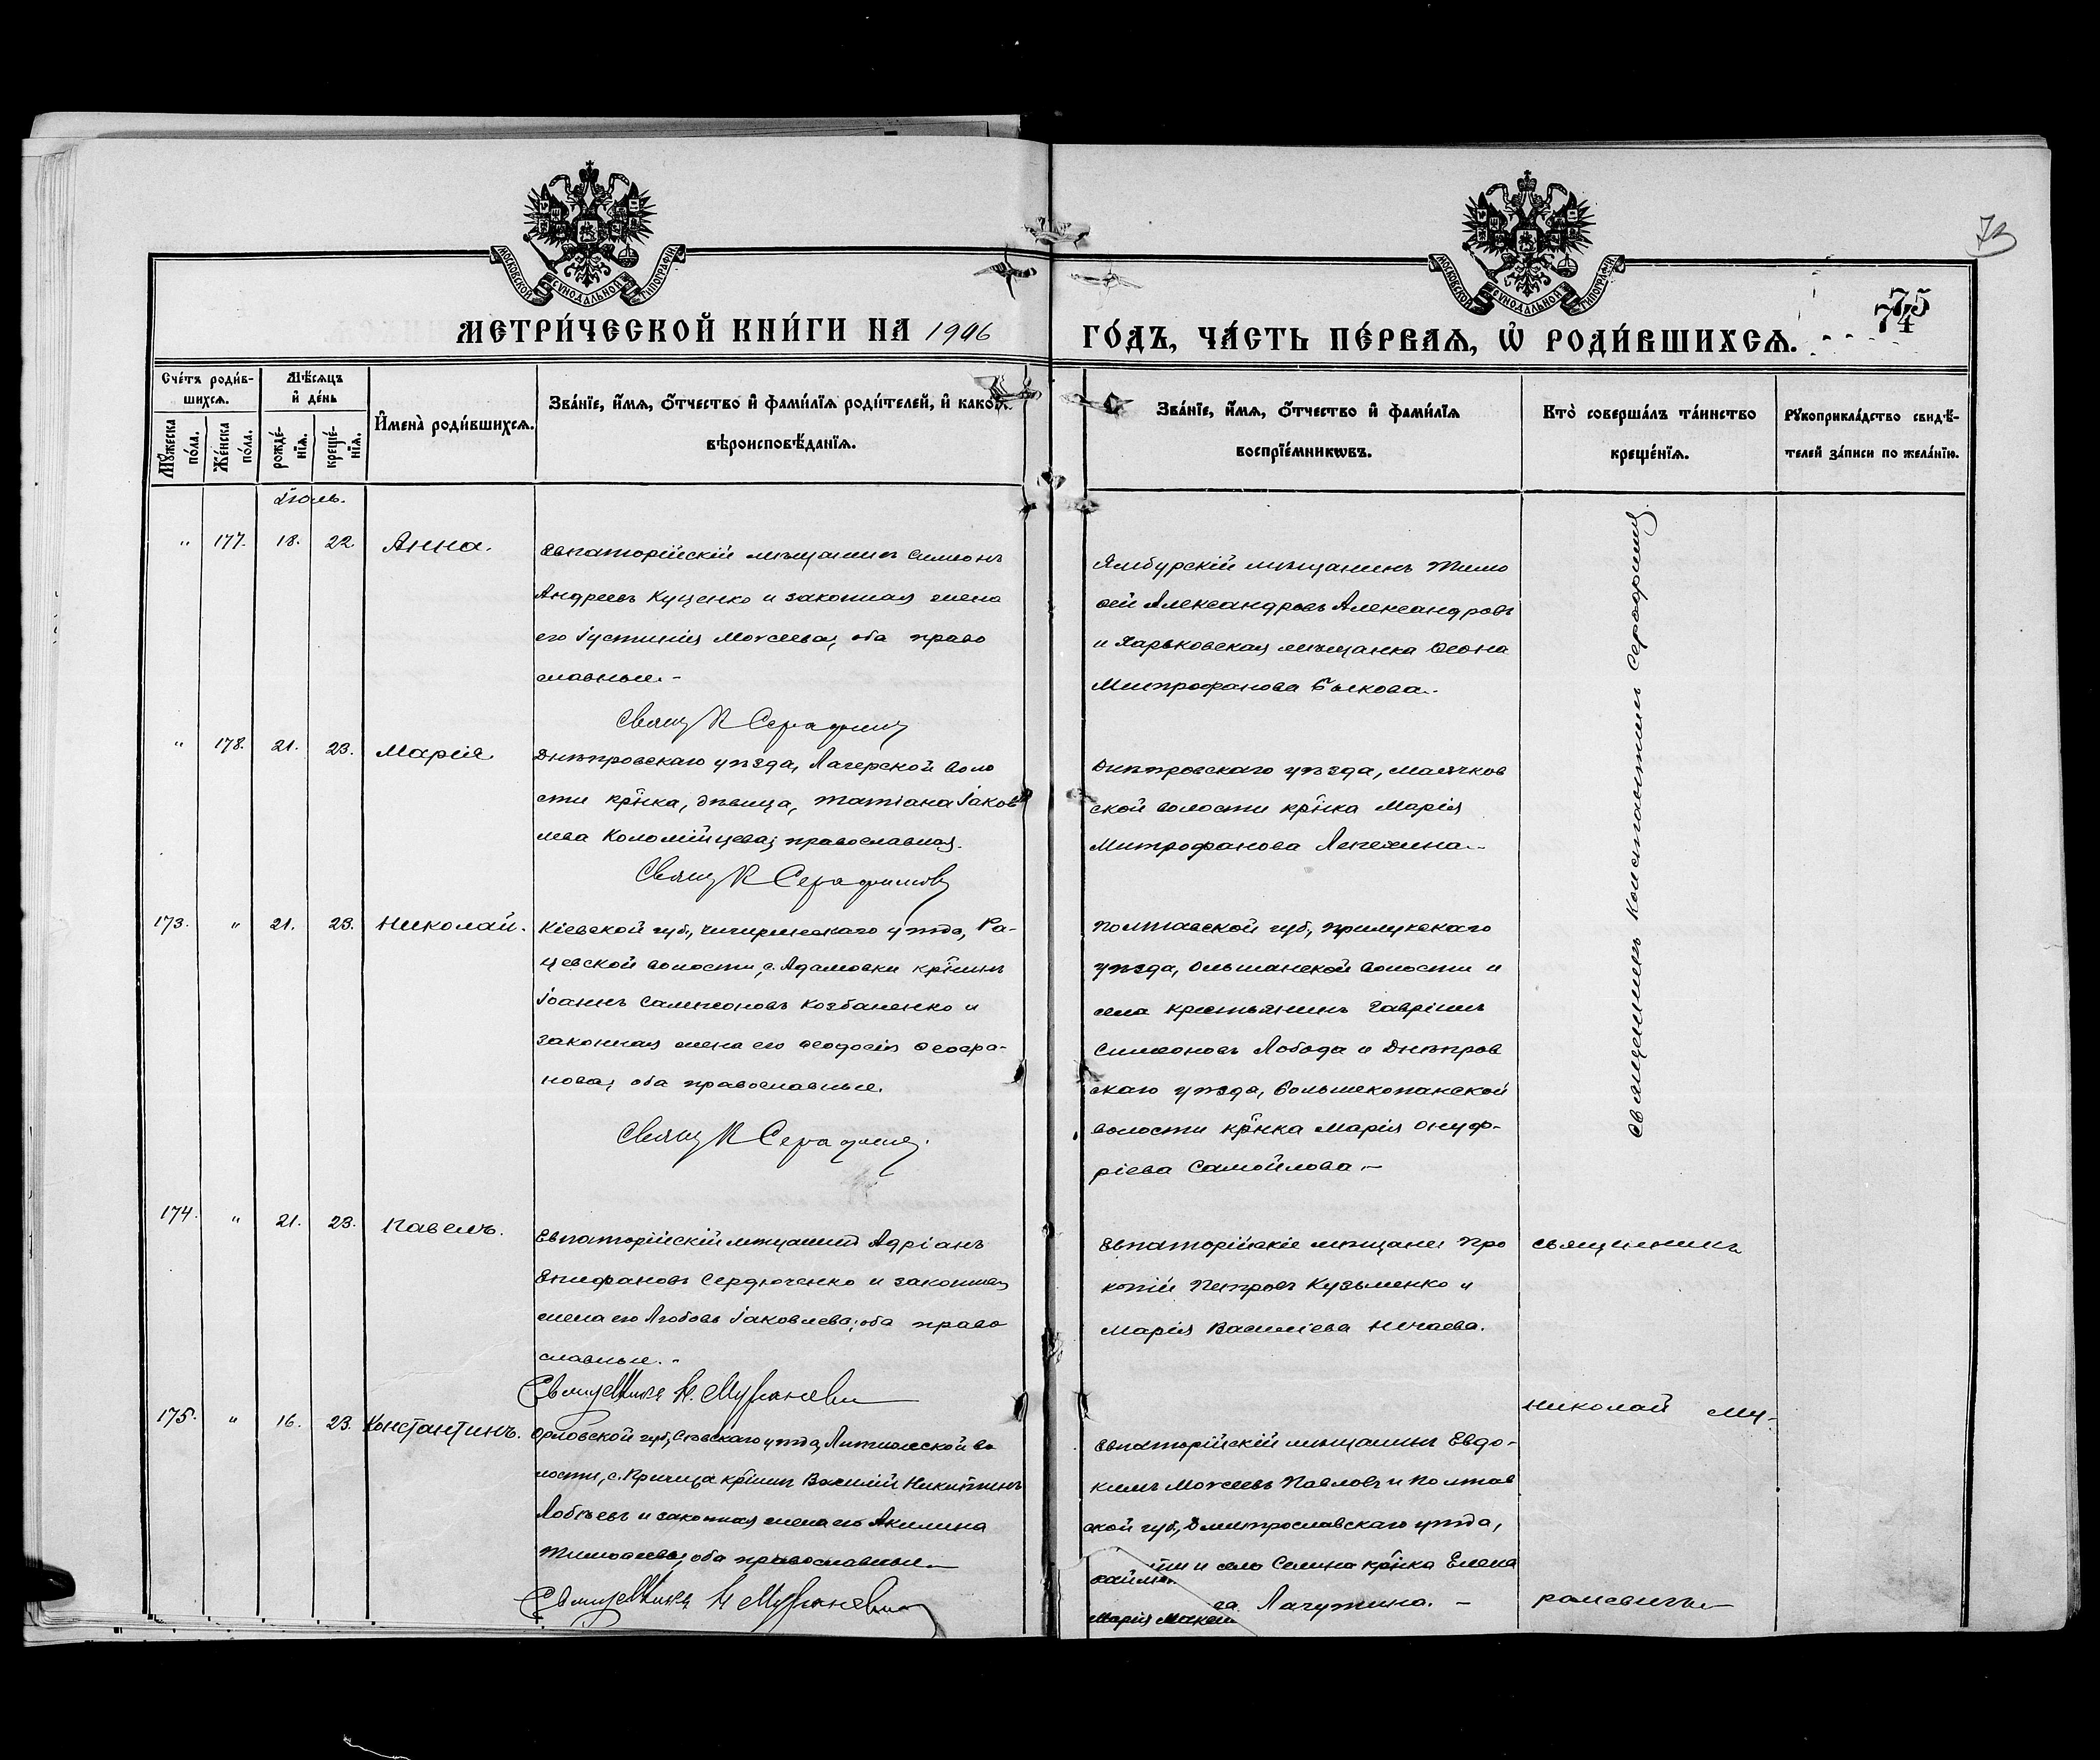 МОСКОВСКОЙ СУНОДАЛЬНОЙ ТИПОГРАФІИ
МОСКОВСКОЙ СУНОДАЛЬНОЙ ТИПОГРАФІИ
73
МЕТРИ́ЧЕСКОЙ КНИ́ГИ НА 1906
ГО́ДЪ, ЧА́СТЬ ПЕ́РВАЯ, Ѡ РОДИ́ВШИХСЯ.
75
74
Сче́тъ роди́в-
шихся.
Мѣ́сяцъ
и де́нь
Мꙋ́жеска
по́ла.
Же́нска
по́ла.
рожде́-
нія.
креще́-
нія.
Имена̀ роди́вшихся.
Зва́ніе, и́мя, о́тчество и фами́лія роди́телей, и како́гѡ
вѣроисповѣ́данія.
Зва́ніе, и́мя, о́тчество и фами́лія
воспріе́мникѡвъ.
Кто̀ соверша́лъ та́инство
креще́нія.
Рꙋкоприкла́дство свидѣ́-
телей за́писи по жела́нію.
Іюль.
" 177. 18. 22. Анна.
Евпаторійскій мѣщанинъ Симеонъ
Андреевъ Куценко и законная жена
его Іустинія Моисеева, оба право
славные.-
Свящ К Серафим
Ямбурскій мѣщанинъ Тимо
ѳей Александровъ Александровъ
и Харьковская мѣщанка Ѳеона
Митрофанова Быкова.-
Священникъ Константинъ Серафимовъ
" 178. 21. 23. Марія
Днѣпровскаго уѣзда, Лагерской воло
сти кр̃нка, дѣвица, Татіана Іаков
лева Коломійцева; православная.
Свящ К Серафимовъ
Днѣпровскаго уѣзда, Маячков
ской волости кр̃нка Марія
Митрофанова Лепехина.-
173. " 21. 23. Николай.
Кіевской губ., Чигиринскаго уѣзда, Ра-
цевской волости, с. Адамовки кр̃нинъ
Іоаннъ Сампсоновъ Козбаненко и
законная жена его Ѳеодосія Ѳеофа-
нова, оба православные.
Свящ К Серафим
Полтавской губ., Прилукскаго
уѣзда, Ольшанской волости и
села крестьянинъ Гавріилъ
Симеоновъ Лобода и Днѣпров
скаго уѣзда, Большекопанской
волости кр̃нка Марія Онуф-
ріева Самойлова.-
174. " 21. 23. Павелъ.
Евпаторійскій мѣщанинъ Адріанъ
Епифановъ Сердюченко и законная
жена его Любовь Іаковлева; оба право
славные.-
Священникъ Н. Мураневич
Евпаторійскіе мѣщане Про
копій Петровъ Кузьменко и
Марія Василіева Нечаева.
Священникъ
175. " 16. 23. Константинъ.
Орловской губ., Сѣвскаго уѣзда, во
лости, с. кр̃нинъ Василій Никитинъ
и законная жена его Акилина
Тимоѳеева; оба православные.-
Священникъ Н Мураневич
Евпаторійскій мѣщанинъ Евдо-
кимъ Моисеевъ Павловъ и Полтав
ской губ., Дмитрославскаго уѣзда,
и села Селина кр̃нка Елена
ва Лагутина.-
Марія
Николай Му-
раневичъ